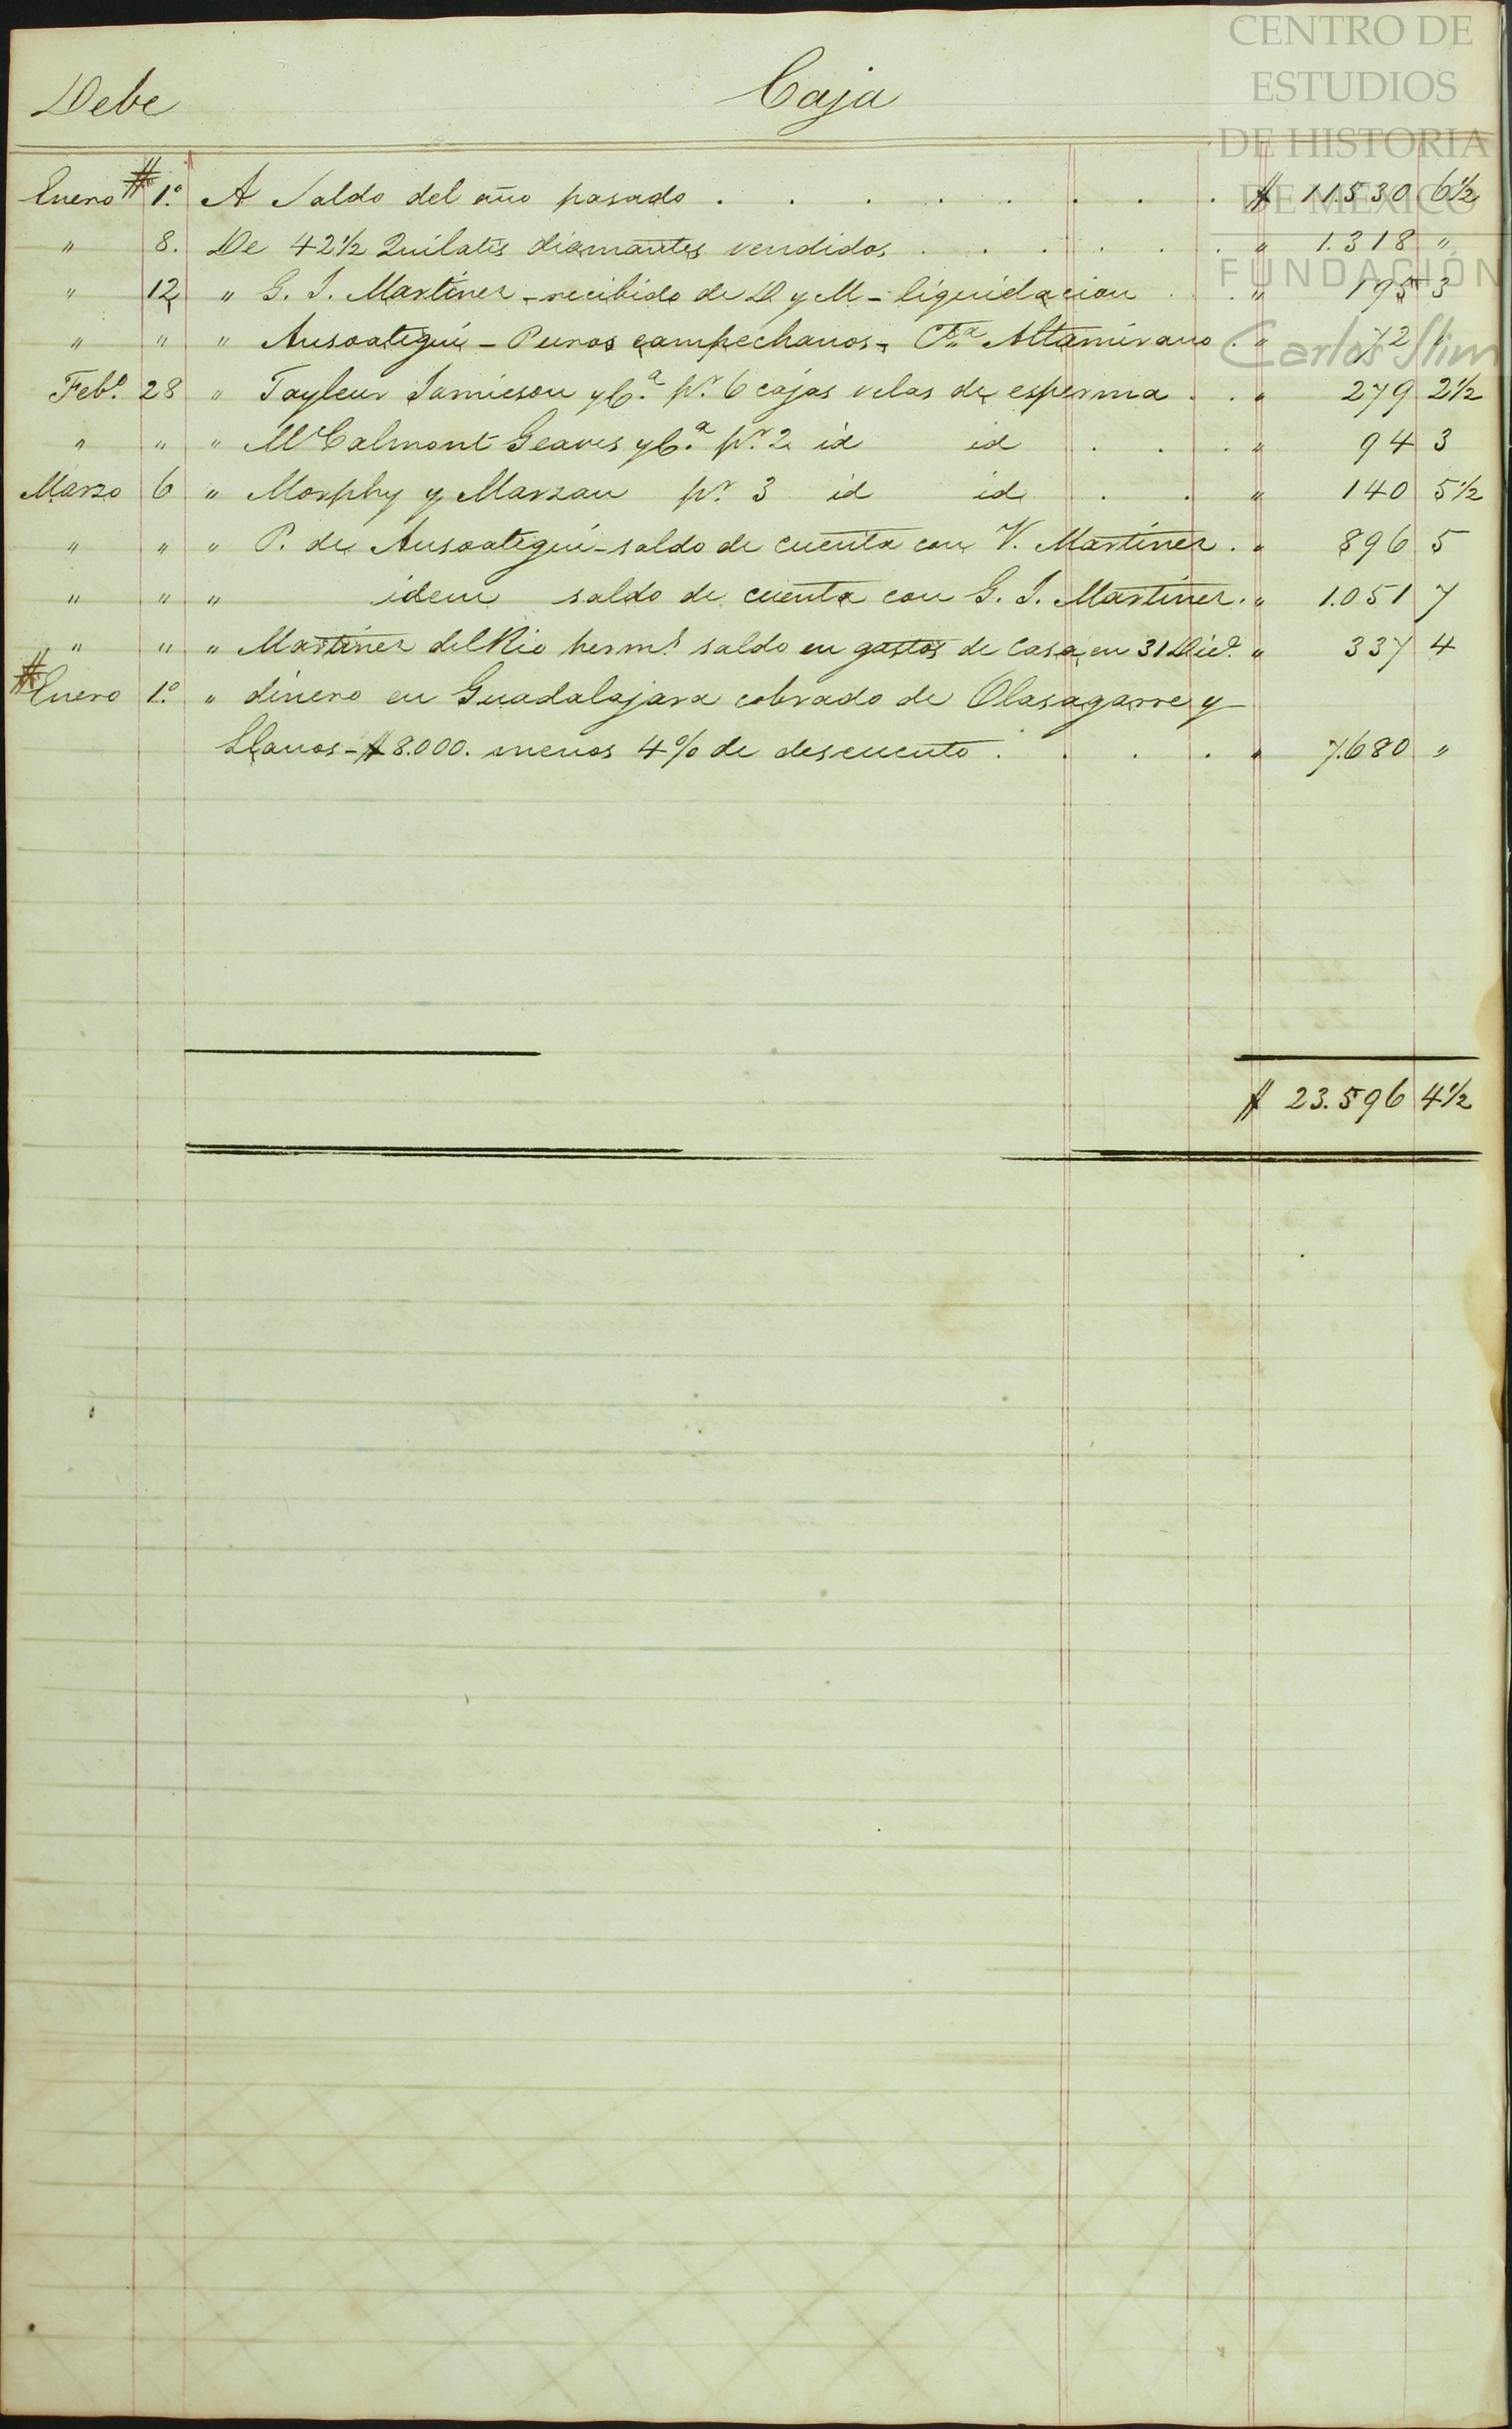 CENTRO DE
ESTUDIOS
DE HISTORIA
DE MÉXICO
FUNDACIÓN
Carlos Slim
Debe Caja
Enero # 1.º A Saldo del año pasado . . . . . . . . $ 11.530 6½
" 8. De 42½ Quilates diamantes vendidos . . . . . . " 1.318 "
" 12 " G. J. Martinez - recibido de D y M - liquidacion . . " 195 3
" " " Ansoategui - Puros campechanos - Cta Altamirano . " 72 1
Feb.º 28 " Tayleur Jamieson y C.ª p.r 6 cajas velas de esperma . . " 279 2½
" " " McCalmont Geaves y C.ª p.r 2 id id . . . " 94 3
Marzo 6 " Morphy y Marzan p.r 3 id id . . " 140 5½
" " " P. de Ansoategui - saldo de cuenta con V. Martinez . " 896 5
" " " idem saldo de cuenta con G. J. Martinez . " 1.051 7
" " " Martinez del Rio herm.s saldo en gastos de casa en 31 Dic.e " 337 4
# Enero 1.º " dinero en Guadalajara cobrado de Olasagarre y
Llanos - $ 8.000. menos 4% de descuento . . . . " 7.680 "
$ 23.596 4½